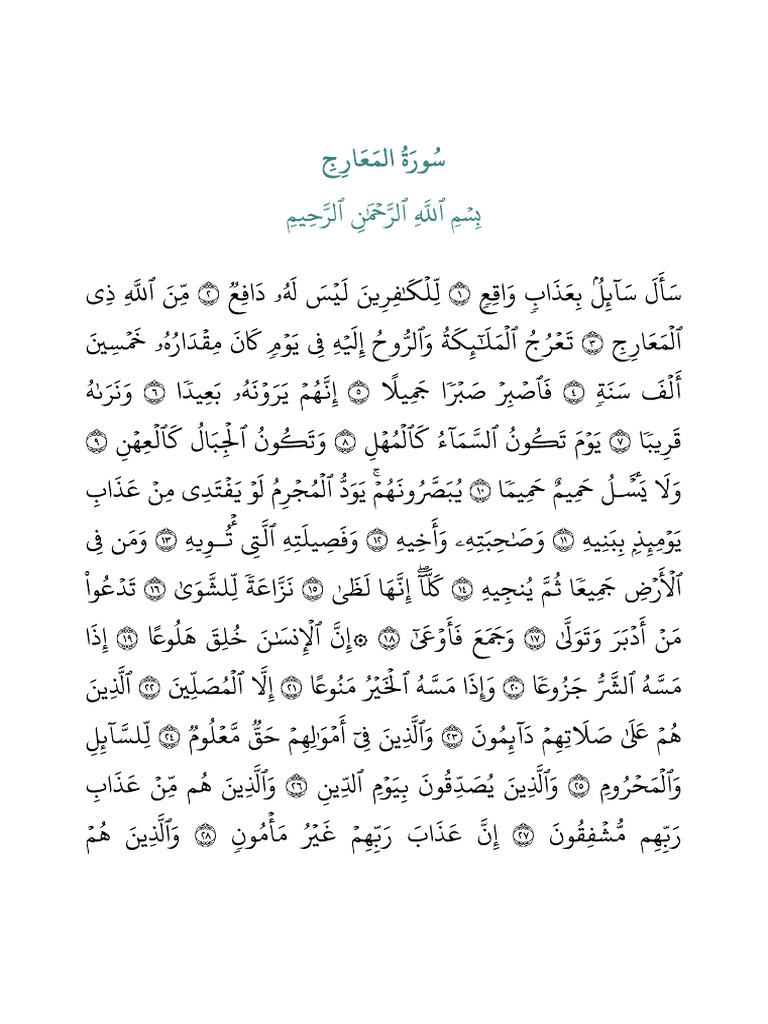 سُورَةُ المَعَارِجِ
بِسۡمِ ٱللَّهِ ٱلرَّحۡمَٰنِ ٱلرَّحِيمِ
سَأَلَ سَآئِلُۢ بِعَذَابٖ وَاقِعٖ ١ لِّلۡكَٰفِرِينَ لَيۡسَ لَهُۥ دَافِعٞ ٢ مِّنَ ٱللَّهِ ذِي
ٱلۡمَعَارِجِ ٣ تَعۡرُجُ ٱلۡمَلَٰٓئِكَةُ وَٱلرُّوحُ إِلَيۡهِ فِي يَوۡمٖ كَانَ مِقۡدَارُهُۥ خَمۡسِينَ
أَلۡفَ سَنَةٖ ٤ فَٱصۡبِرۡ صَبۡرٗا جَمِيلًا ٥ إِنَّهُمۡ يَرَوۡنَهُۥ بَعِيدٗا ٦ وَنَرَىٰهُ
قَرِيبٗا ٧ يَوۡمَ تَكُونُ ٱلسَّمَآءُ كَٱلۡمُهۡلِ ٨ وَتَكُونُ ٱلۡجِبَالُ كَٱلۡعِهۡنِ ٩
وَلَا يَسۡـَٔلُ حَمِيمٌ حَمِيمٗا ١٠ يُبَصَّرُونَهُمۡۚ يَوَدُّ ٱلۡمُجۡرِمُ لَوۡ يَفۡتَدِي مِنۡ عَذَابِ
يَوۡمِئِذِۭ بِبَنِيهِ ١١ وَصَٰحِبَتِهِۦ وَأَخِيهِ ١٢ وَفَصِيلَتِهِ ٱلَّتِي تُـٔۡوِيهِ ١٣ وَمَن فِي
ٱلۡأَرۡضِ جَمِيعٗا ثُمَّ يُنجِيهِ ١٤ كَلَّآۖ إِنَّهَا لَظَىٰ ١٥ نَزَّاعَةٗ لِّلشَّوَىٰ ١٦ تَدۡعُواْ
مَنۡ أَدۡبَرَ وَتَوَلَّىٰ ١٧ وَجَمَعَ فَأَوۡعَىٰٓ ١٨ ۞إِنَّ ٱلۡإِنسَٰنَ خُلِقَ هَلُوعًا ١٩ إِذَا
مَسَّهُ ٱلشَّرُّ جَزُوعٗا ٢٠ وَإِذَا مَسَّهُ ٱلۡخَيۡرُ مَنُوعًا ٢١ إِلَّا ٱلۡمُصَلِّينَ ٢٢ ٱلَّذِينَ
هُمۡ عَلَىٰ صَلَاتِهِمۡ دَآئِمُونَ ٢٣ وَٱلَّذِينَ فِيٓ أَمۡوَٰلِهِمۡ حَقّٞ مَّعۡلُومٞ ٢٤ لِّلسَّآئِلِ
وَٱلۡمَحۡرُومِ ٢٥ وَٱلَّذِينَ يُصَدِّقُونَ بِيَوۡمِ ٱلدِّينِ ٢٦ وَٱلَّذِينَ هُم مِّنۡ عَذَابِ
رَبِّهِم مُّشۡفِقُونَ ٢٧ إِنَّ عَذَابَ رَبِّهِمۡ غَيۡرُ مَأۡمُونٖ ٢٨ وَٱلَّذِينَ هُمۡ